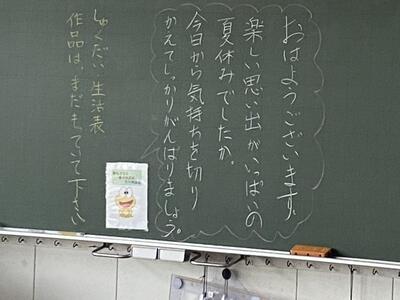 おはようございます。
楽しい思い出がいっぱいの
夏休みでしたか。
今日から気持ちを切り
かえてしっかりがんばりましょう。
しゅくだい 生活表
作品は、まだもっていて下さい